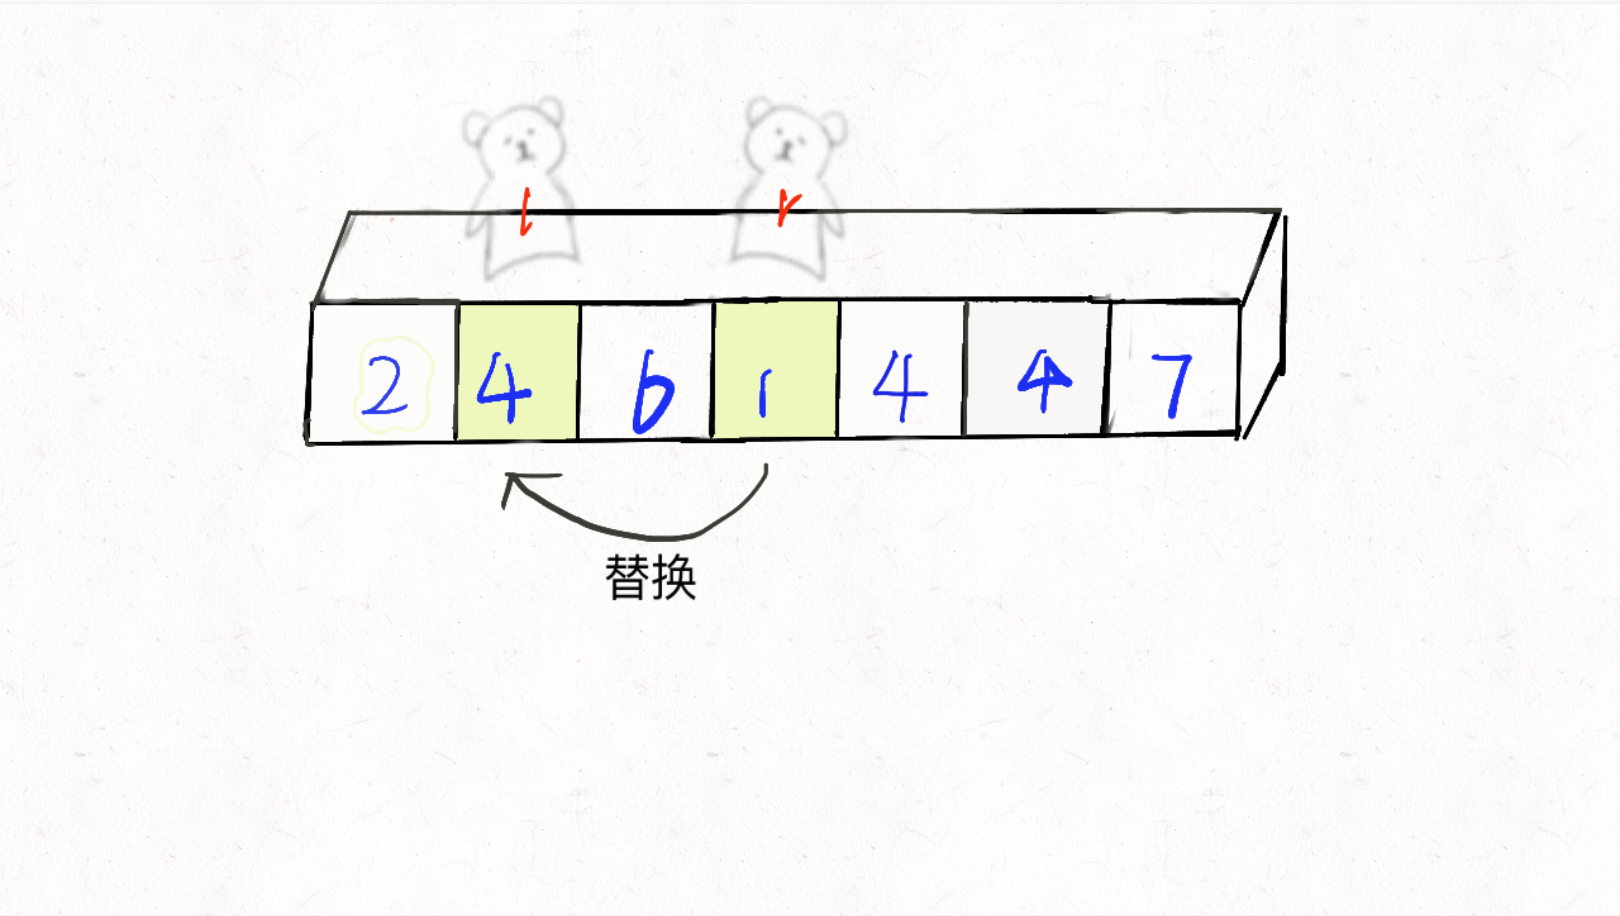 l r
2 4 6 1 4 4 7
替换